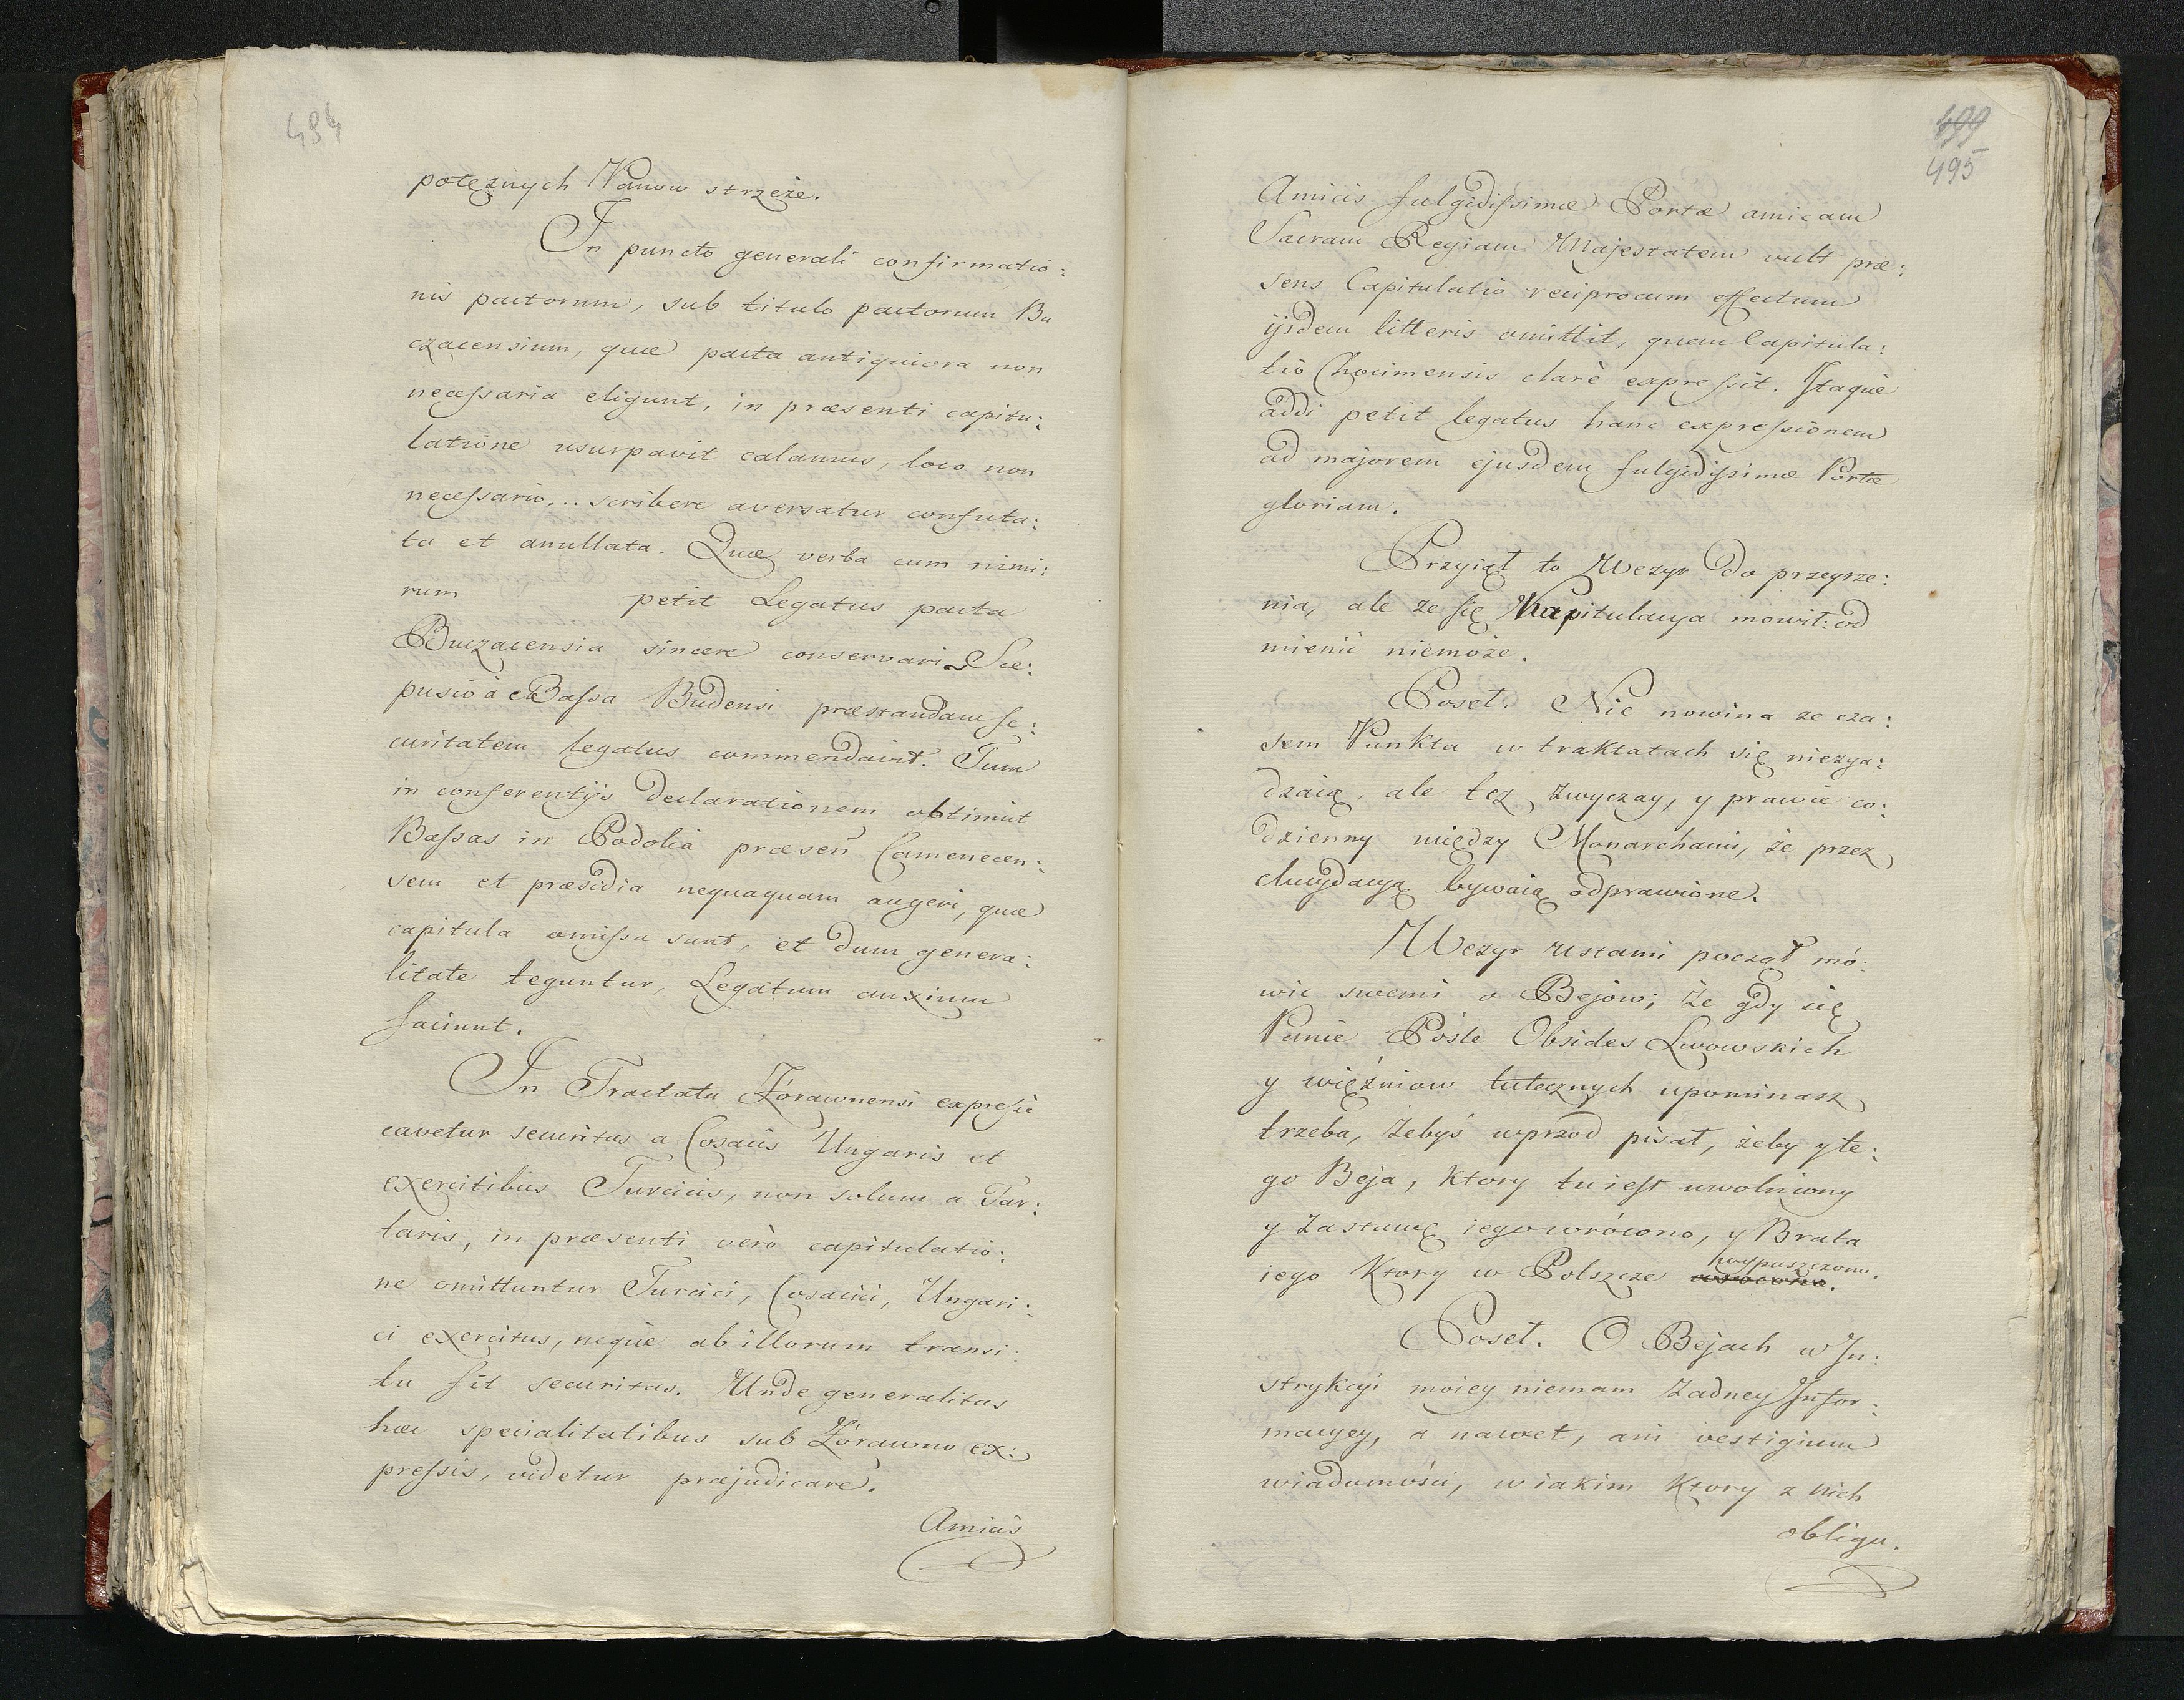 494
potężnych Panow strzeże.
In puncto generali confirmatio:
nis pactorum, sub titulo pactorum Bu
czacensium, quæ pacta antiquiora non
necessaria eligunt, in præsenti capitu:
latione usurpavit calamus, loco non
necessario... scribere aversatur confuta:
ta et anullata. Quæ verba cum nimi:
rum petit Legatus pacta
Buczacensia sincere conservari Sce:
pusio à Bassa Budensi præstandam se:
curitatem legatus commendavit. Tum
in conferentijs declarationem obtinuit
Bassas in Podolia præsen Camenecen:
sem et præsidia nequaquam augeri, quæ
capitula omissa sunt, et dum genera:
litate teguntur, Legatum anxium
faciunt.
In Tractatu Żórawnensi expresse
cavetur securitas a Cosacis Ungaris et
exercitibus Turcicis, non solum a Tar:
taris, in præsenti verò capitulatio:
ne omittuntur Turcici, Cosacici, Ungari:
ci exercitus, neque ab illorum transi:
tu sit securitas. Unde generalitas
hæc specialitatibus sub Żórawno ex:
pressis, videtur præjudicare.
Amicis
499
495
Amicis fulgidissimæ Portæ amicam
Sacram Regiam Majestatem vult præ:
sens Capitulatio reciprocum effectum
ijsdem litteris omittit, quem Capitula:
tio Chocimensis clarè expressit. Itaque
addi petit legatus hanc expressionem
ad majorem ejusdem fulgidissimæ Portæ
gloriam.
Przyiął to Wezyr do przeyrze:
nia, ale ze się Kapitulacya mowił: od
mienić niemoże.
Poseł. Nie nowina ze cza:
sem Punkta w traktatach się niezga:
dzaią, ale tez zwyczay, y prawie co:
dzienny między Monarchami, że przez
elucydacyą bywaią odprawione.
Wezyr ustami począł mó:
wic swemi o Bejow; Że gdy się
Panie Pośle Obsides Lwowskich
y więźniow tutecznych upominasz
trzeba, żebyś wprzod pisał, żeby y te:
go Beja, Ktory tu iest uwolniony
y Zastawę iego wrócono, y Brata
iego Ktory w Polszcze wypuszczono.
Poseł. O Bejach w In:
strykcyi moiey niemam Żadney Infor:
macyey, a nawet, ani vestigium
wiadomości, w iakim Ktory z nich
obligu.